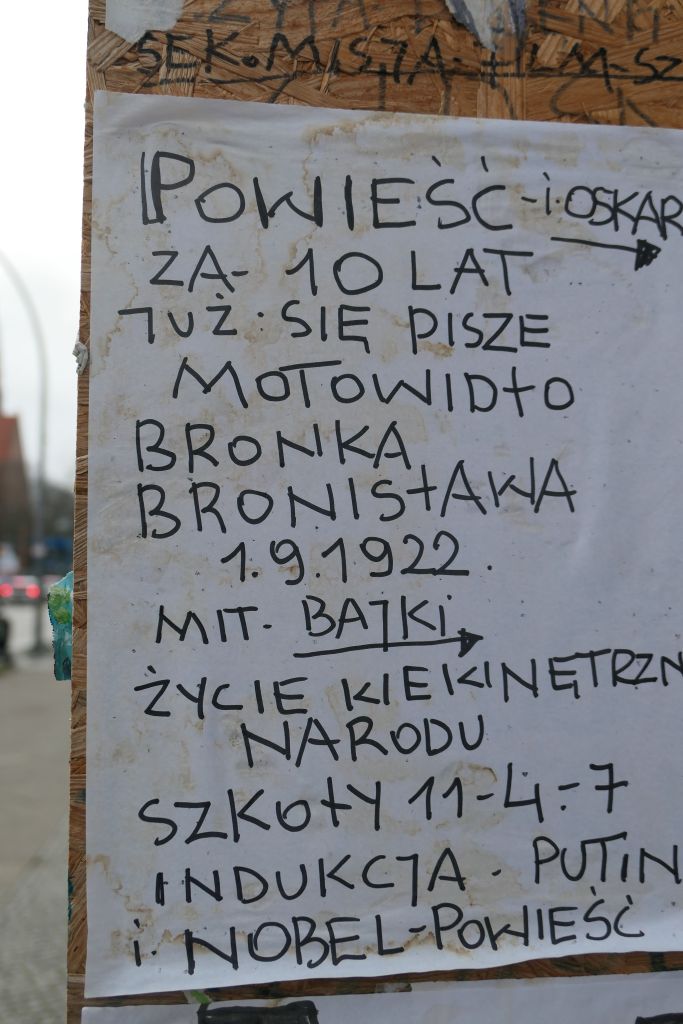 SEK. MISJA - FILM - SZ
POWIEŚĆ - i OSKAR
ZA - 10 LAT
JUŻ - SIĘ PISZE
MOTOWIDŁO
BRONKA
BRONISŁAWA
1.9.1922.
MIT - BAJKi
ŻYCIE KIEKINĘTRZN
NARODU
SZKOŁY 11-4-7
INDUKCJA - PUTIN
i NOBEL-POWIEŚĆ